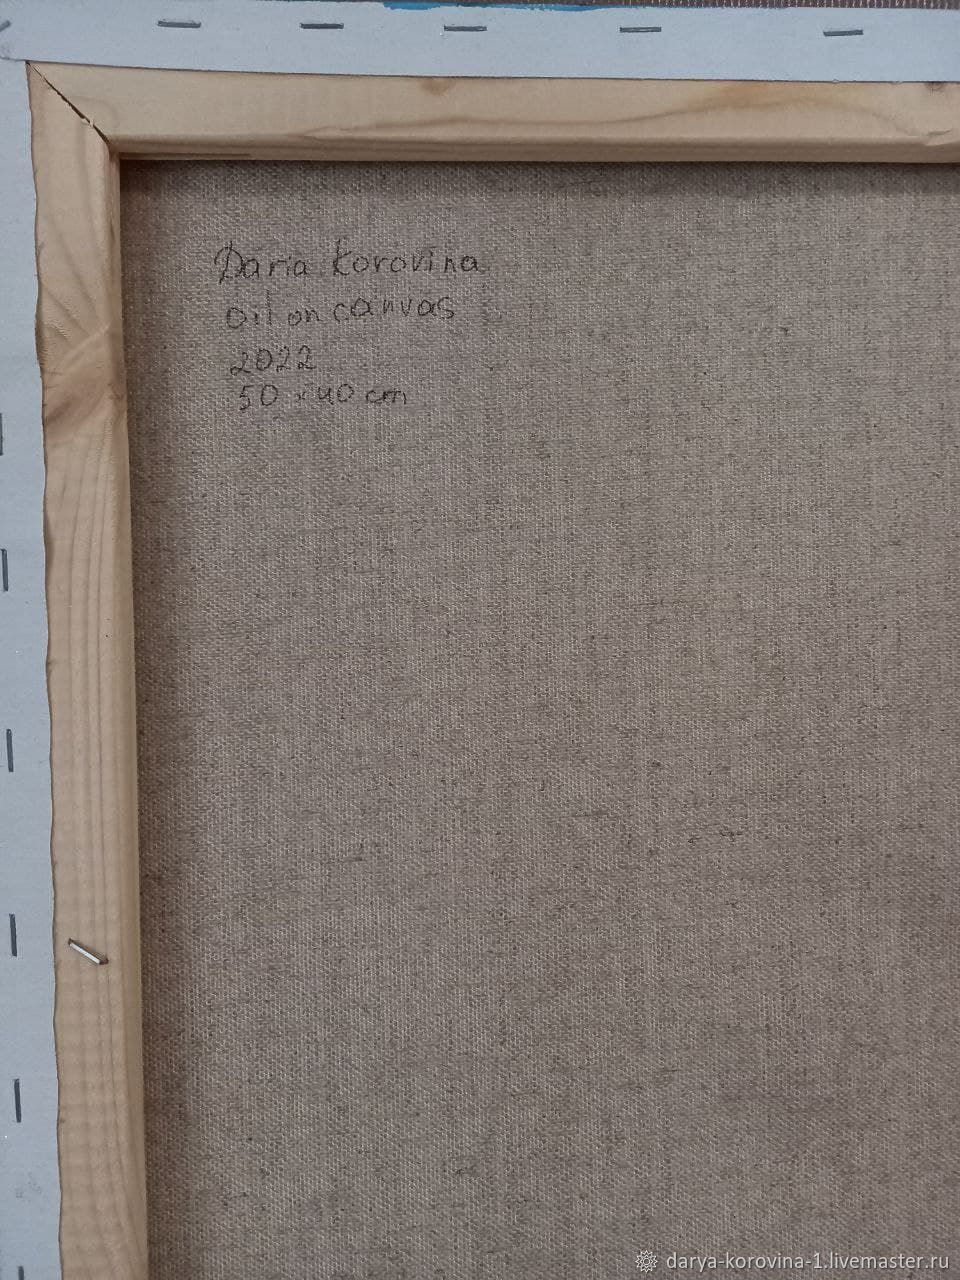 Daria Korovina
oil on canvas
2022
50 x 40 cm
darya-korovina-1.livemaster.ru